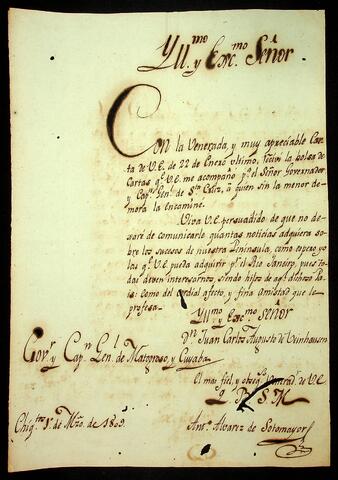 Yll.mo y Exc.mo Señor
Con la Venerada, y muy apreciable Car
ta de V.E. de 22 de Enero ultimo, recivi la bolsa de
Cartas q.e V.E. me acompaño p.a el Señor Governador
y Cap.n Gen.l de S.ta Cruz, à quien sin la menor de=
mora la encaminè.
Viva V.E. persuadido de que no de
xaré de comunicarle quantas noticias adquiera
sobre los sucesos de nuestra Peninsula, como espero yo
las q.e V.E. pueda adquirir p.r el Rio Janeiro, pues to
das deven interesarnos, siendo hijos de aq.l dichoso Pais:
como del cordial afecto, y fina amistad que le
profesa.
Yll.mo y Exc.mo Señor
D.n Juan Carlos Augusto de Oeinhausen
Gov.r y Cap.n Gen.l de Matogroso, y Cuyaba
El mas fiel, y obseq.te Venerad.r de V.E.
Q. B. S. M.
Chiq.tos 1.º de Mzo. de 1809.
Ant.o Alvarez de Sotomayor